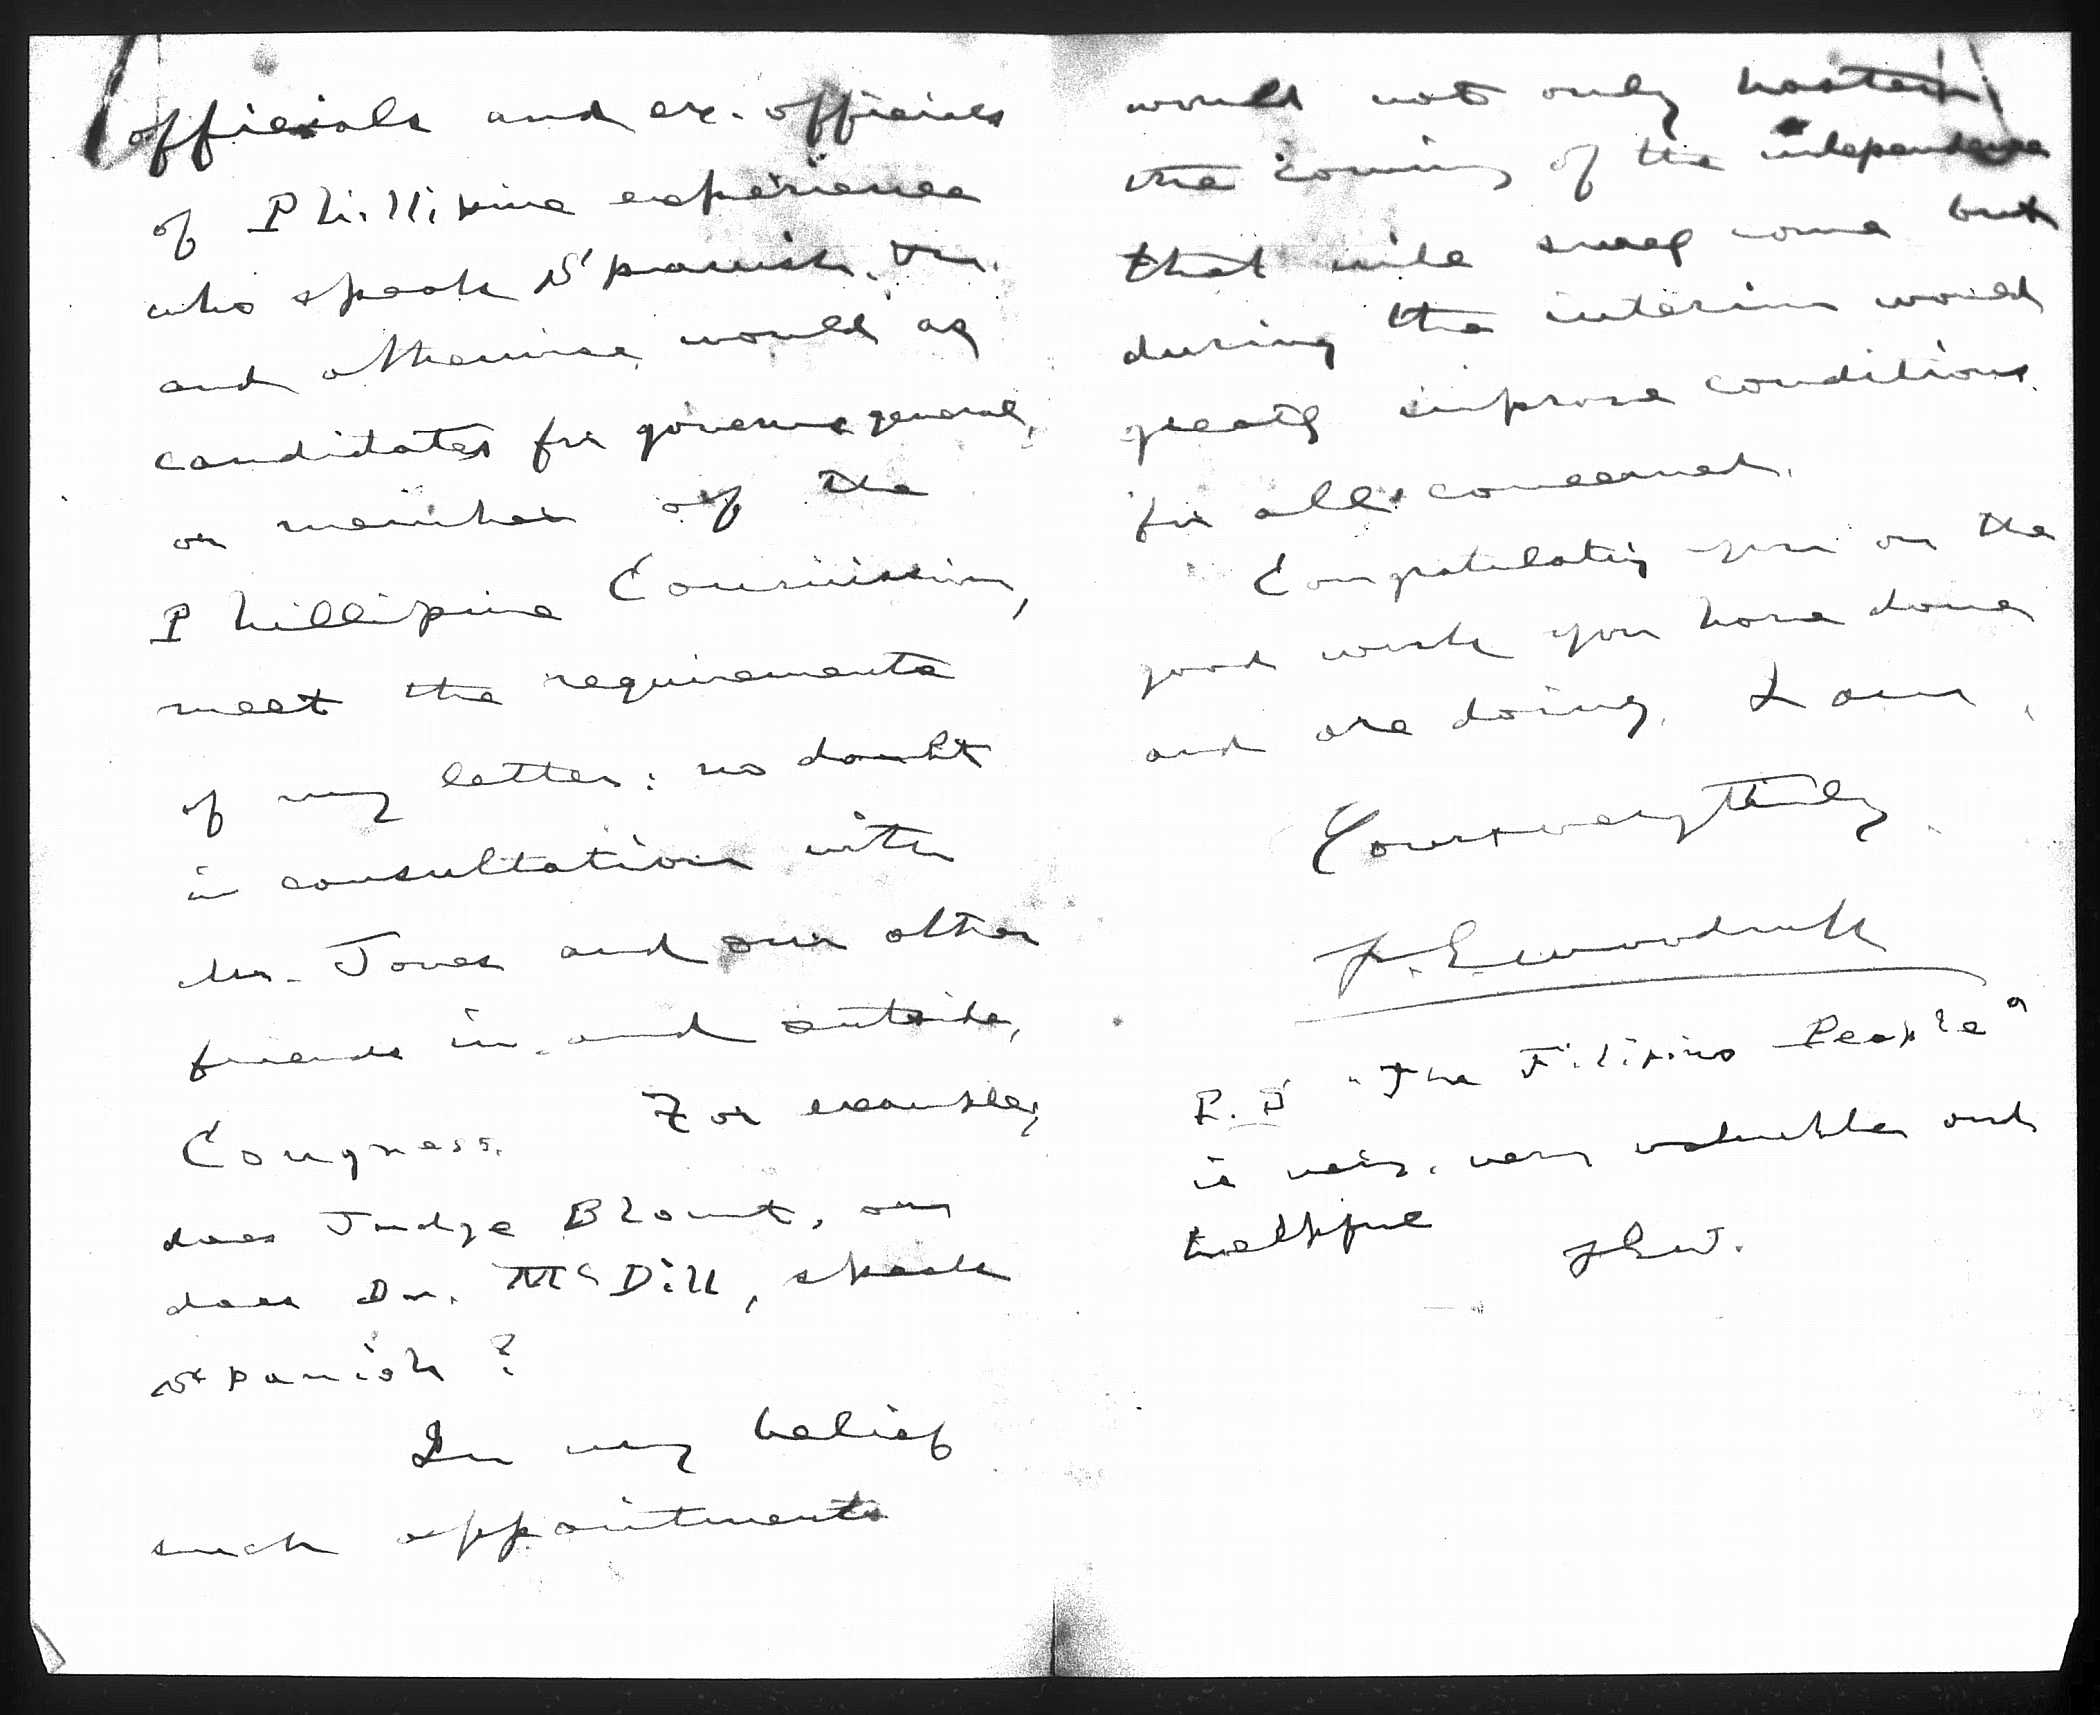 officials and ex-officials
of Phillipine experience
who speak Spanish,
and otherwise would as
candidates for governor general,
or member of the
Phillipine Commission,
meet the requirements
of my letter: no doubt
in consultation with
Mr. Jones and our other
friends in and outside,
Congress. For example,
does Judge Blount, or
does Dr. McDill, speak
Spanish?
In my belief
such appointments
would not only hasten
the coming of the independence
that will surely come but
during the interim would
greatly improve conditions
for all concerned.
Congratulating you on the
good work you have done
and are doing, I am,
Yours very truly
Woodruff
P.S "The Filipino People"
is very, very valuable and
helpful